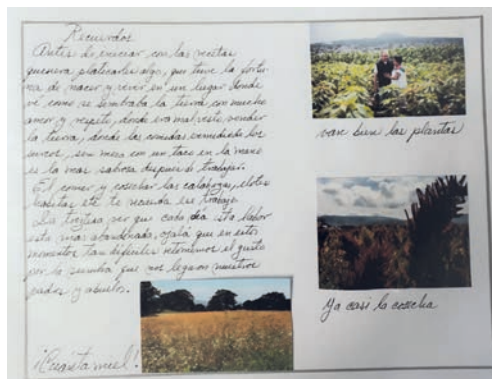 Recuerdos
Antes de iniciar con las recetas
quisiera platicarles algo, que tuve la fortu
na de nacer y vivir en un lugar donde
ve como se sembraba la tierra, con mucho
amor y respeto, donde era mal visto vender
la tierra, donde las comidas en medio de los
surcos, sin mesa con un taco en la mano
es la mas sabrosa después de trabajar.
El comer y cosechar las calabazas, elotes
habitas etc te recuerda ese trabajo.
La tristeza ver que cada día esta labor
esta mas abandonada, ojalá que en estos
momentos tan difíciles retomemos el gusto
por la semilla que nos legaron nuestros
padres y abuelos.
¡Cuanta miel!
van bien las plantas
Ya casi la cosecha